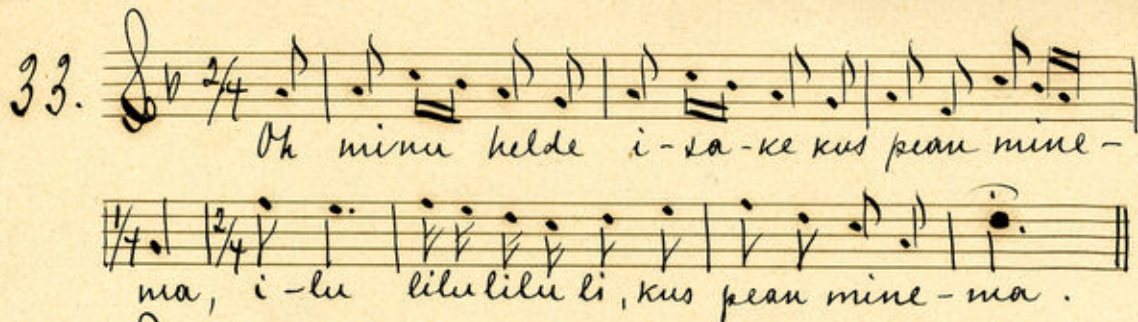 33. 2/4
Oh minu helde i-sa-ke kus pean mine-
1/4 2/4
ma, i-lu lilulilu li, kus pean mine-ma.